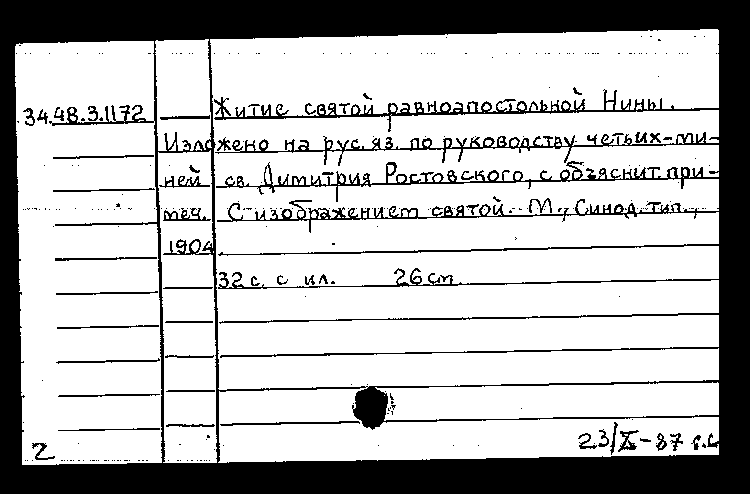 34.48.3.1172 Житие святой равноапостольной Нины.
Изложено на рус. яз. по руководству четьих-ми-
ней св. Димитрия Ростовского, с объяснит. при-
меч. С изображением святой. М., Синод. тип.,
1904.
32 с. с ил. 26 см.
2 23/X-87